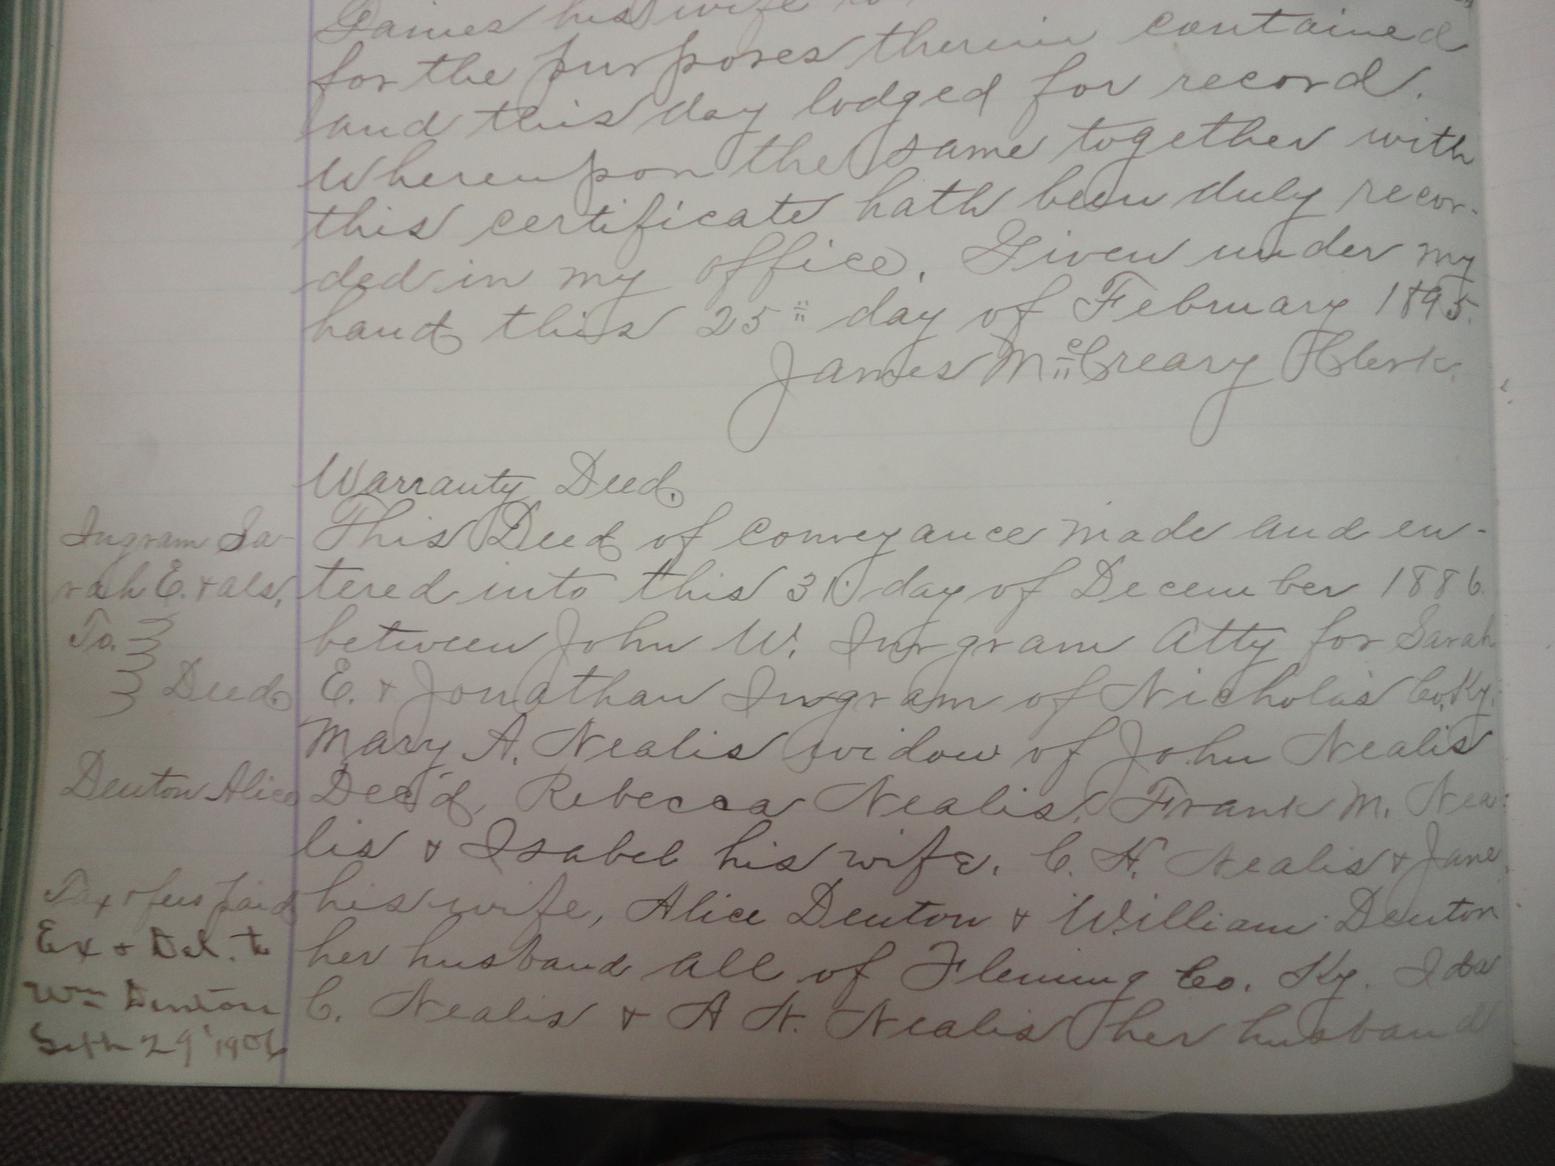 Gaines his wife
for the purposes therein contained
and this day lodged for record.
Whereupon the same together with
this certificate hath been duly recor-
ded in my office. Given under my
hand this 25" day of February 1895.
James McCreary Clerk.
Warranty Deed.
Ingram Sa-
rah E. + als,
To.
Deed
Denton Alice
Tax + fees paid
Ex + Del. to
Wm Denton
Sept 29' 1906
This Deed of conveyance made and en-
tered into this 31 day of December 1886
between John W. Ingram Atty for Sarah
E. + Jonathan Ingram of Nicholas Co. Ky.
Mary A. Nealis widow of John Nealis
Dec'd, Rebecca Nealis, Frank M. Nea-
lis + Isabel his wife. C. H. Nealis + Jane
his wife, Alice Denton + William Denton
her husband all of Fleming Co. Ky. Ida
C. Nealis + A. N. Nealis her husband